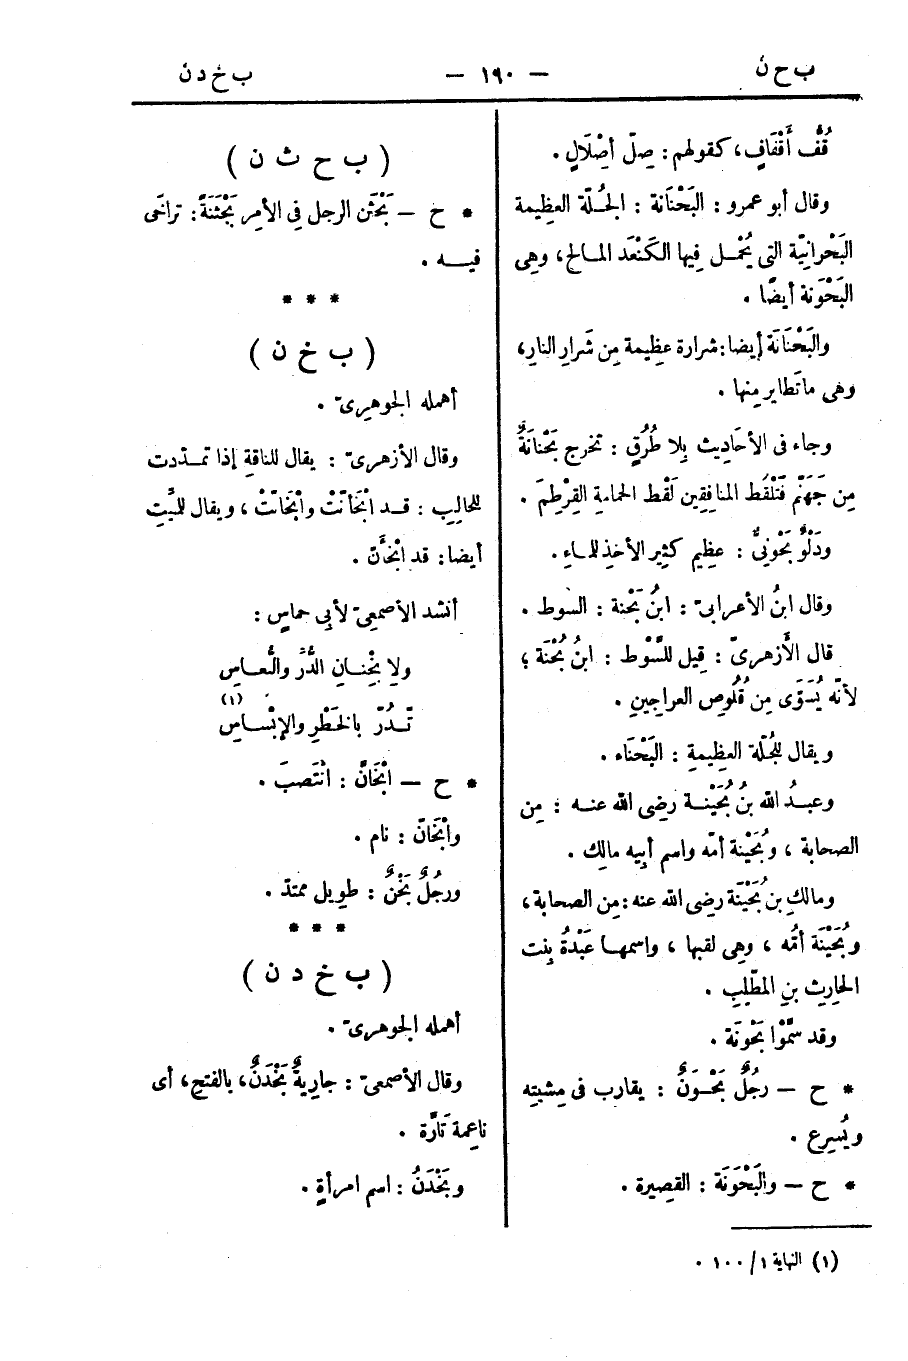 ب ح ن
— ١٩٠ —
ب خ د ن
قُفّ أَقْفَافٍ، كقولهم: صِلّ أصْلَالٍ.
وقال أبو عمرو: البَحْنَانة: الجُلّة العظيمة
البَحْرانيّة التى يُحْمل فيها الكَنْعَد المالح، وهى
البَحْوَنة أيضًا.
والبَحْنَانَة أيضا: شرارة عظيمة مِن شَرارِ النارِ،
وهى ما تَطاير منها.
وجاء فى الأحَاديث بِلا طُرُقٍ: تخرج بَحْنانَةٌ
مِن جَهَنَّمَ فَتَلْقُط المنافقِين لَقْط الحمامةِ القِرْطِمَ.
ودَلْوٌ بَحْوَنِىٌّ: عظيم كثير الأخذِ للماءِ.
وقال ابنُ الأعرابىّ: ابنُ بَحْنة: السوط.
قال الأَزهرىّ: قِيل للسَّوْط: ابنُ بُحْنَة؛
لأنّه يُسَوَّى مِن قُلُوصِ العراجينِ.
ويقال للجُلّة العظيمةِ: البَحْنَاء.
وعبدُ الله بنُ بُحَيْنة رضى الله عنه: مِن
الصحابة، وبُحَيْنة أمّه واسم أبِيه مالِك.
ومالك بن بُحَيْنَة رضى الله عنه: مِن الصحابة،
وبُحَيْنَة أمُّه، وهى لقبها، واسمها عَبْدةُ بِنت
الحارِث بنِ المطّلِبِ.
وقد سمَّوْا بَحْوَنَة.
* ح — رجُلٌ بَحْوَنٌ: يقارب فى مِشيتِه
ويُسرِع.
* ح — والبَحْوَنَة: القصيرة.
(١) النهاية ١/١٠٠.
( ب ح ث ن )
* ح — بَحْثَن الرجل فى الأمرِ بَحْثَنَةً: تراخَى
فيه.
* * *
( ب خ ن )
أهمله الجوهرىّ.
وقال الأزهرىّ: يقال للناقةِ إذا تمدّدت
للحالِبِ: قد ابْخَأنّتْ وابْخَانّتْ، ويقال للميِّتِ
أيضا: قد ابْخَأَنّ.
أنشد الأصمعىّ لأبِى حماسٍ:
ولا بِخْنانِ الدُّرِّ والنُّعاسِ
تَدُرّ بالخَطْرِ والإبْساسِ (١)
* ح — ابْخَانَّ: انْتَصبَ.
وابْخَانّ: نام.
ورجُلٌ بَخْنٌ: طويل ممتدّ.
* * *
( ب خ د ن )
أهمله الجوهرىّ.
وقال الأصمعىّ: جاريةٌ بَخْدَنٌ، بالفتحِ، أى
ناعِمة تَارَّة.
وبَخْدَنُ: اسم امرأةٍ.